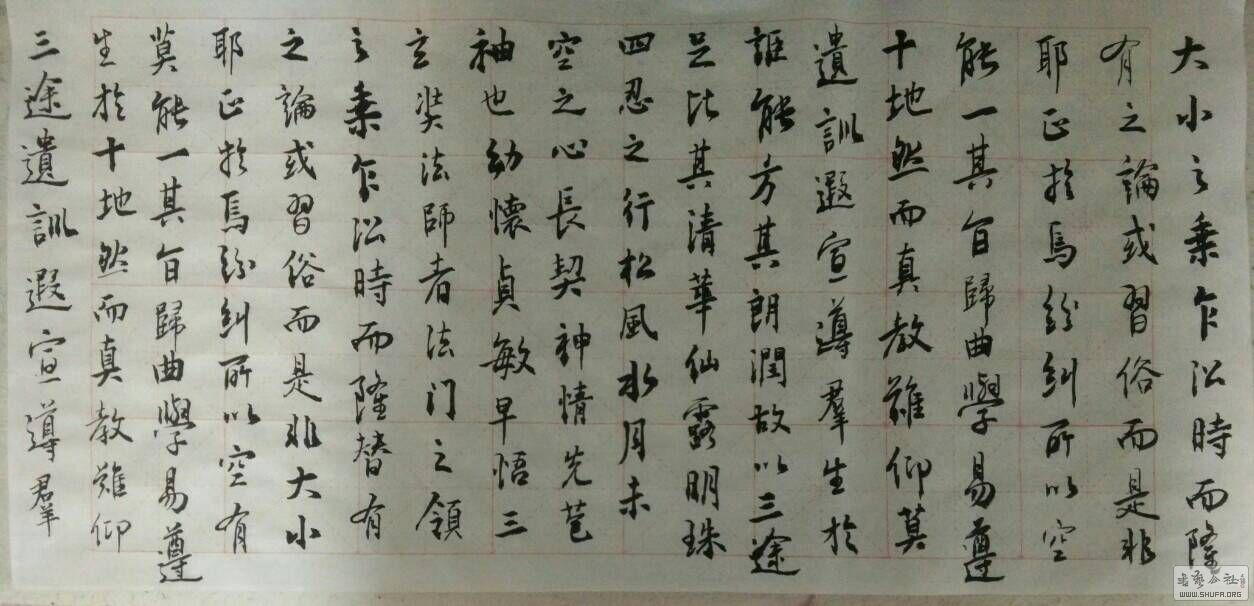 三途遺訓遐宣導羣
生於十地然而真教難仰
莫能一其旨歸曲學易遵
耶正於焉紛糾所以空有
之論或習俗而是非大小
之乘乍沿時而隆替有
玄奘法師者法门之領
袖也幼懷貞敏早悟三
空之心長契神情先苞
四忍之行松風水月未
足比其清華仙露明珠
誰能方其朗潤故以三途
遺訓遐宣導羣生於
十地然而真教難仰莫
能一其旨歸曲學易遵
耶正於焉紛糾所以空
有之論或習俗而是非
大小之乘乍沿時而隆
WWW.SHUFA.ORG